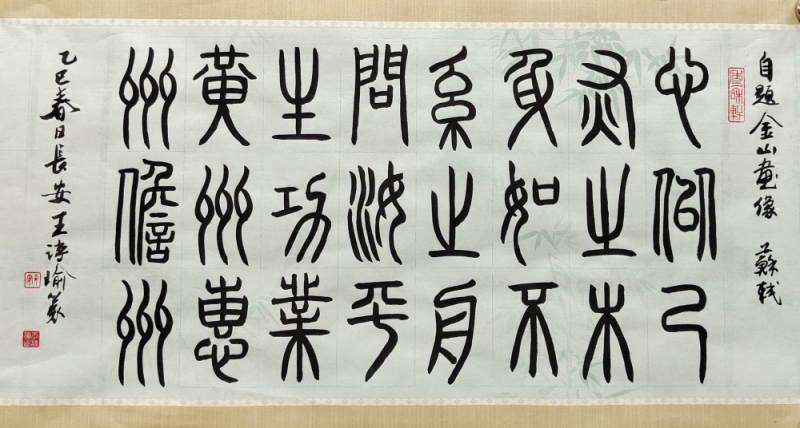 自题金山畫像 蘇軾
心佀已
灰之木
身如不
系之舟
問汝平
生功業
黄州惠
州儋州
乙巳春日長安王瑜篆